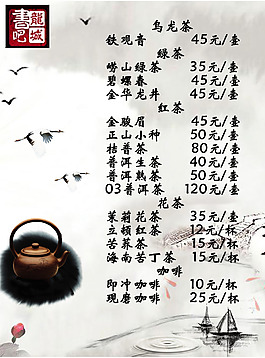 龍城
書吧
乌龙茶
铁观音 45元/壶
绿茶
崂山绿茶 35元/壶
碧螺春 45元/壶
金华龙井 45元/壶
红茶
金骏眉 45元/壶
正山小种 50元/壶
桔普茶 80元/壶
普洱生茶 40元/壶
普洱熟茶 50元/壶
03普洱茶 120元/壶
花茶
茉莉花茶 35元/壶
立顿红茶 12元/杯
苦荞茶 15元/杯
海南苦丁茶 15元/杯
咖啡
即冲咖啡 10元/杯
现磨咖啡 25元/杯